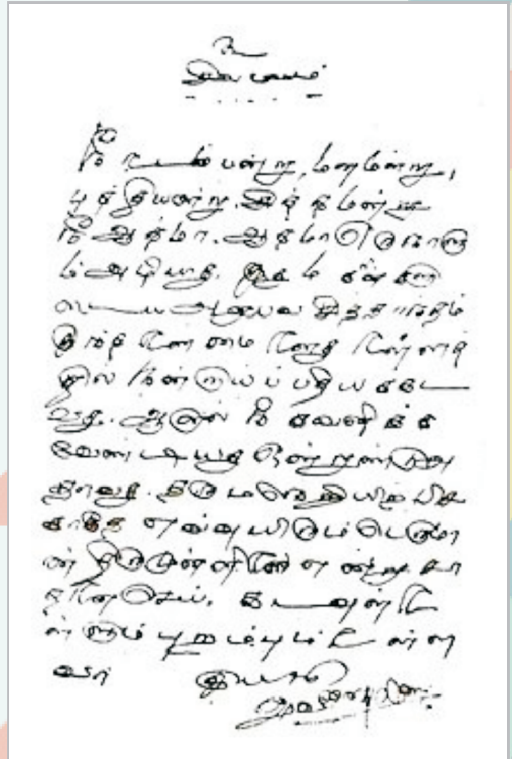 உ
சிவமயம்
நீ உடம்பன்று, மனமன்று,
புத்தியன்று. சித்தமன்று
நீ ஆத்மா. ஆத்மா ஒருநாளு
ம் அழியாது. இது மகான்களு
டைய அனுபவ சித்தாந்தம்
இந்த உண்மை உனது உள்ளத்
தில் நன்றாய்ப் பதியக்கட
வது. ஆனால் நீ கவனிக்க
வேண்டியது ஒன்றுண்டு
அதாவது. தருமநெறியிற் பிச
காதே எவ்வுயிரும் பெருமா
ன் திருமுன்னிலை என்று சா
தனை செய். கடவுள் உ
ள்ளும் புறம்பும் உள்ள
வர்